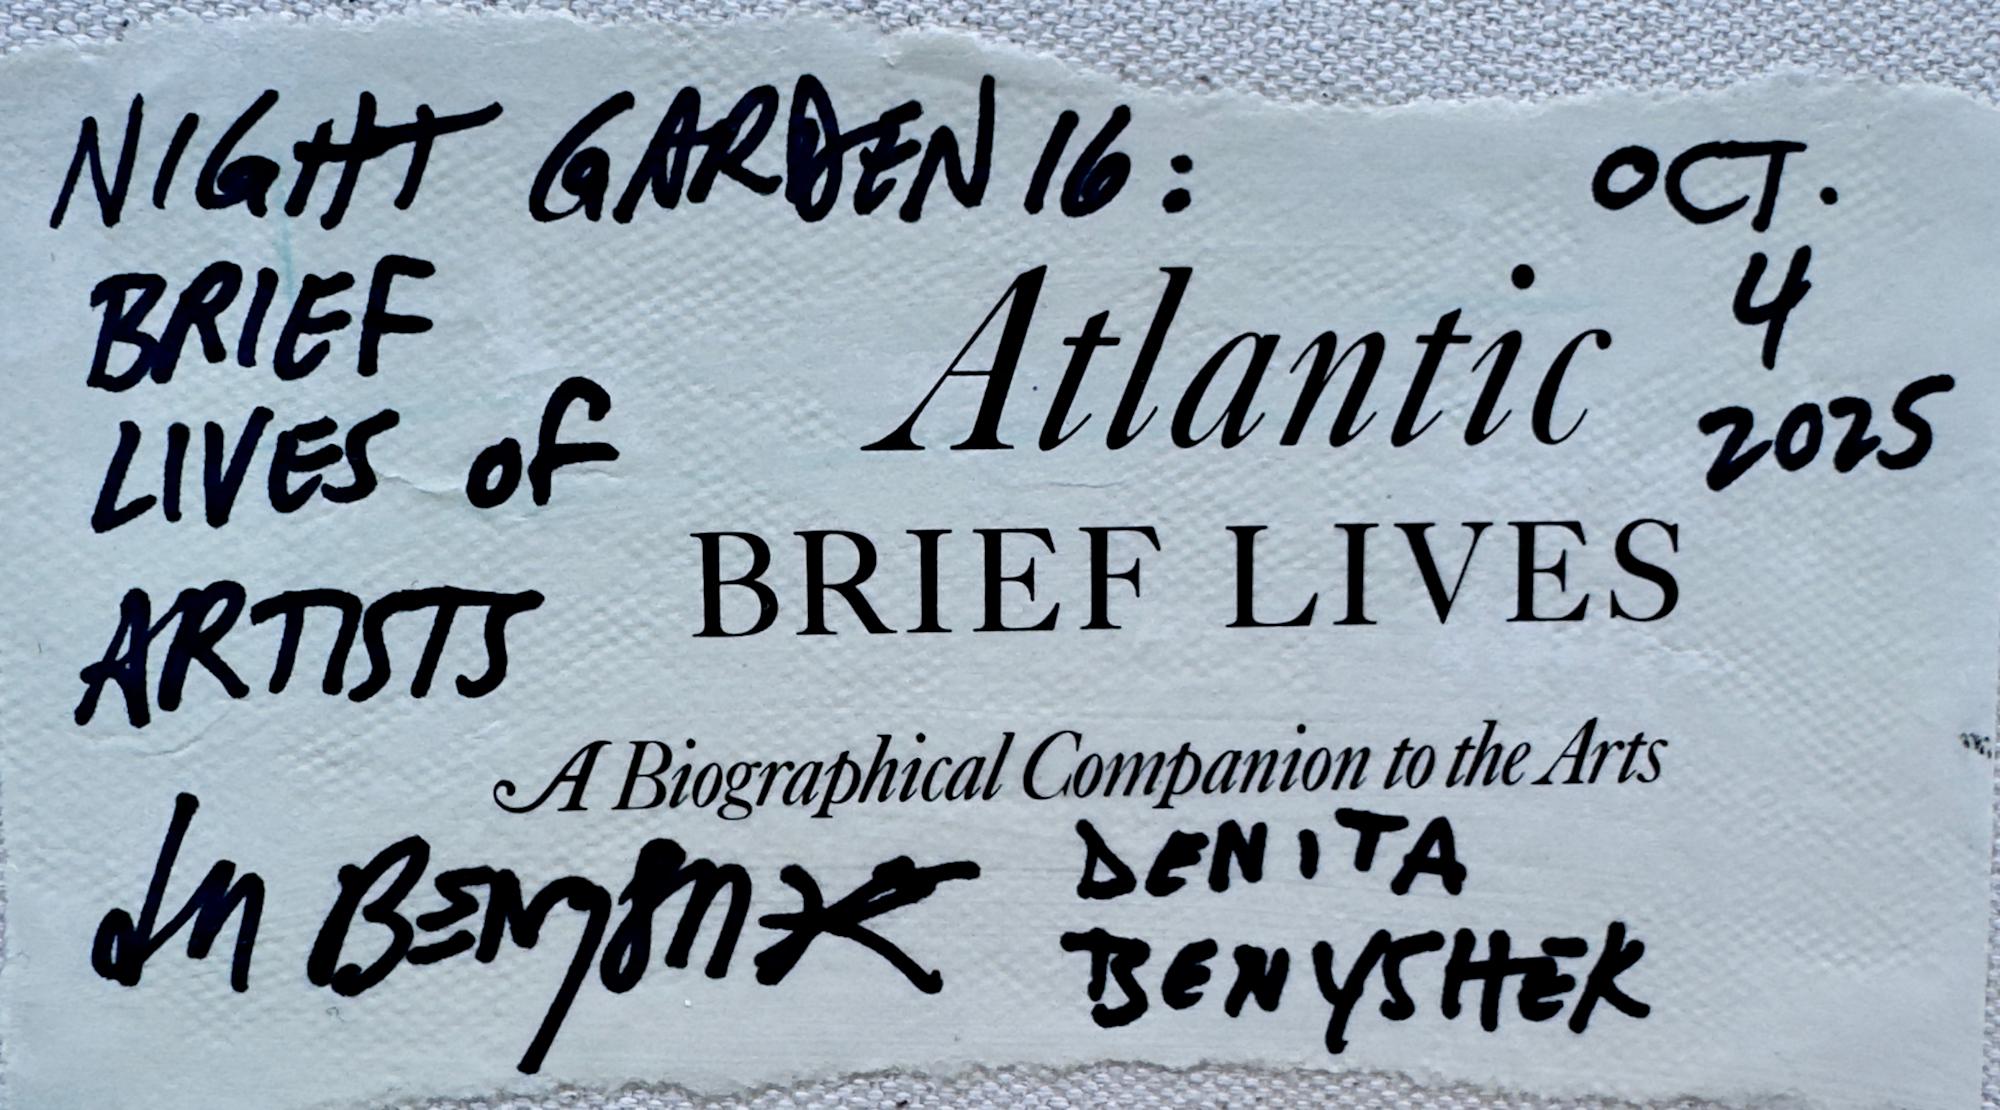 NIGHT GARDEN 16:
OCT.
4
2025
BRIEF
LIVES of
ARTISTS
Atlantic
BRIEF LIVES
A Biographical Companion to the Arts
DENITA
BENYSHEK